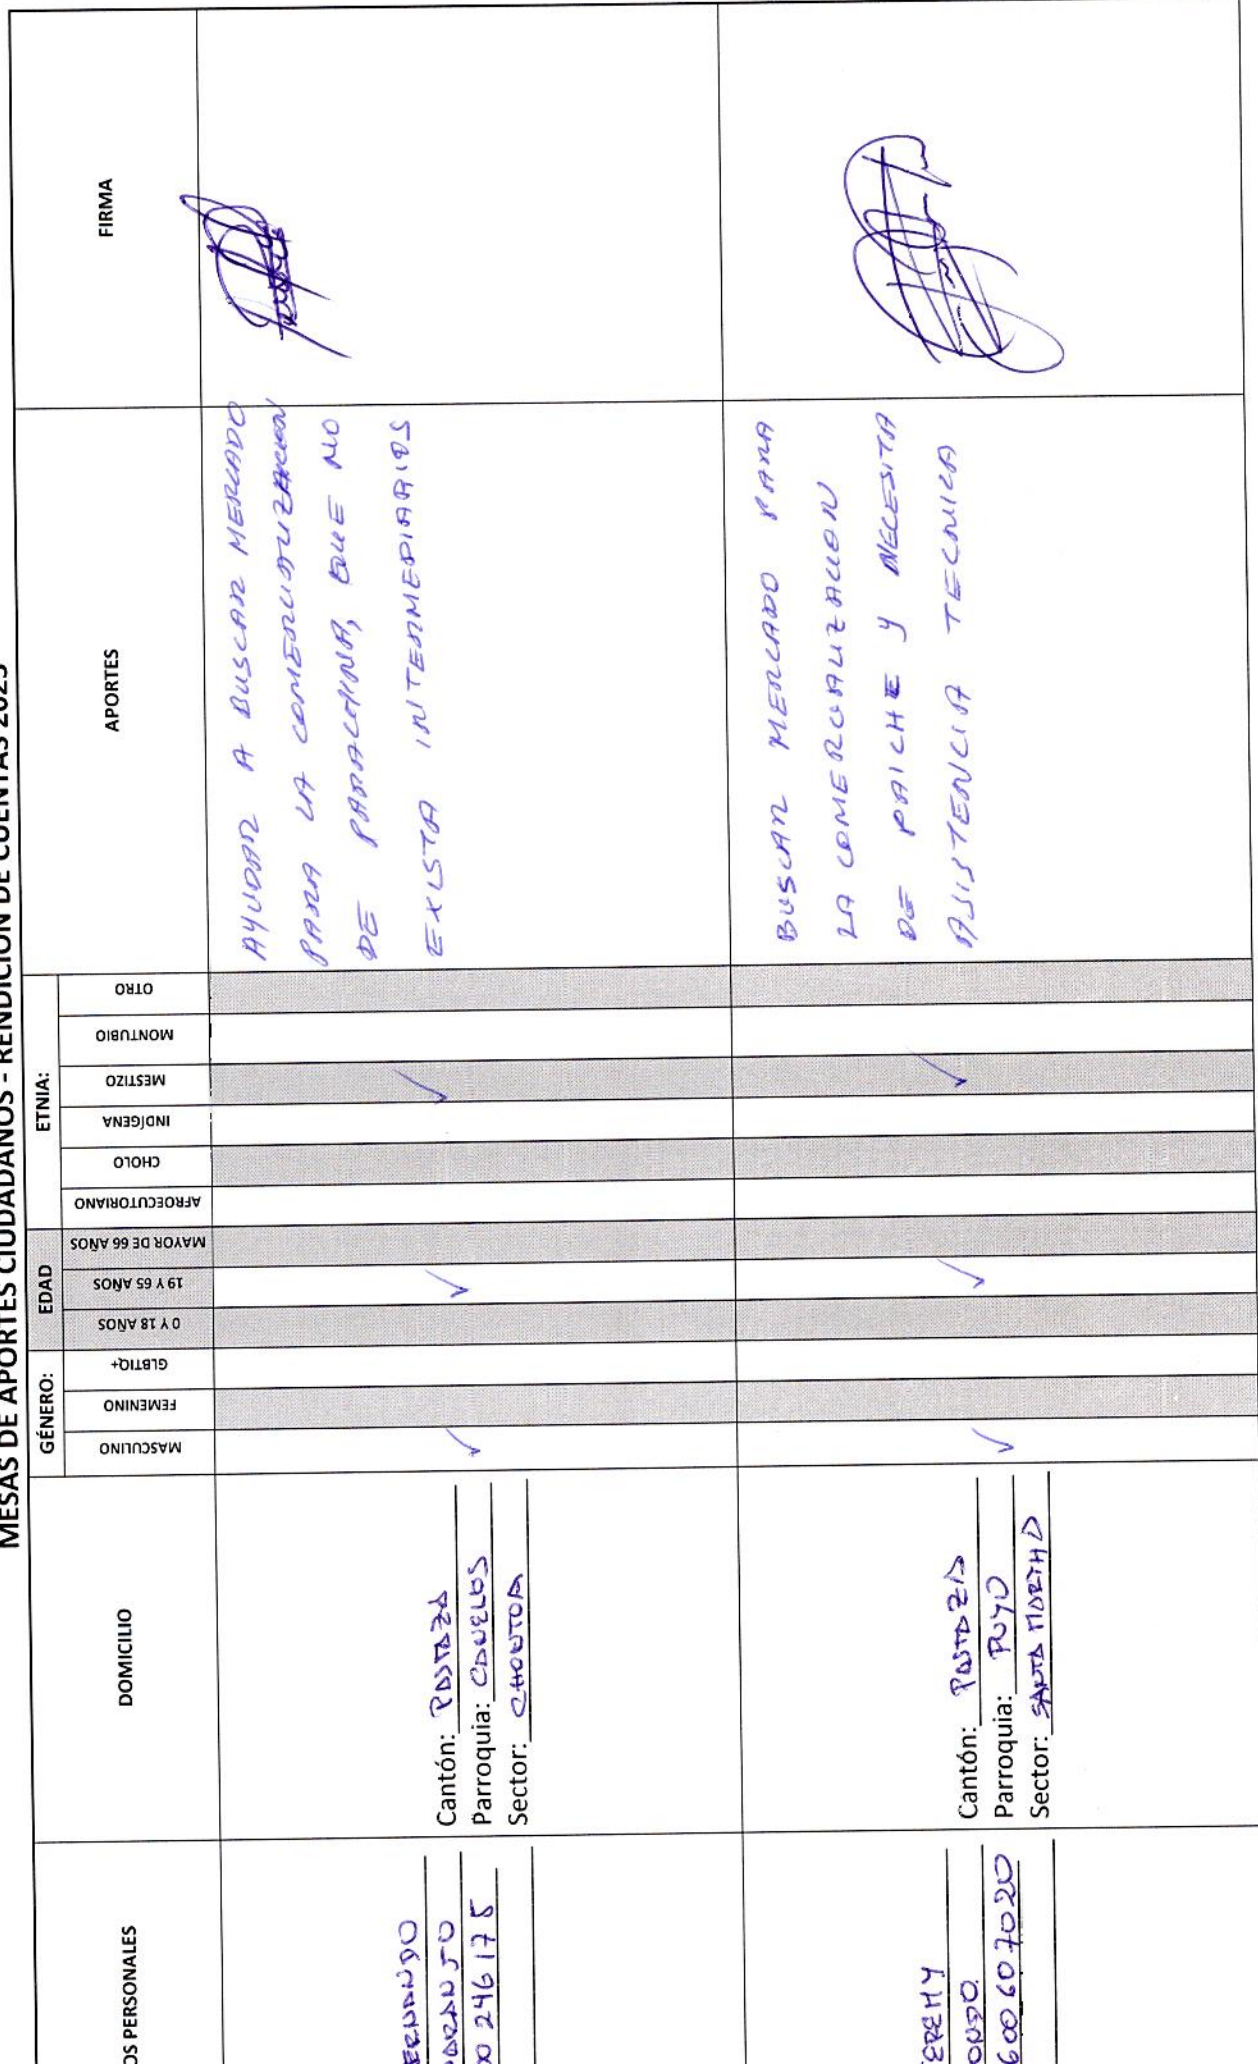 MESAS DE APORTES CIUDADANOS - RENDICIÓN DE CUENTAS 2023
OS PERSONALES
DOMICILIO
GÉNERO:
EDAD
ETNIA:
APORTES
FIRMA
MASCULINO
FEMENINO
GLBTIQ+
0 Y 18 AÑOS
19 Y 65 AÑOS
MAYOR DE 66 AÑOS
AFROECUTORIANO
CHOLO
INDÍGENA
MESTIZO
MONTUBIO
OTRO
ERNANDO
NARANJO
00 246175
Cantón: PASTAZA
Parroquia: CANELOS
Sector: CHONTOA
AYUDAR A BUSCAR MERCADO
PARA LA COMERCIALIZACION
DE PANACHINA, QUE NO
EXISTA INTERMEDIARIOS
EREMY
ONDO.
600607020
Cantón: PASTAZA
Parroquia: PUYO
Sector: SANTA MARTHA
BUSCAR MERCADO PARA
LA COMERCIALIZACION
DE PAICHE Y NECESITA
ASISTENCIA TECNICA